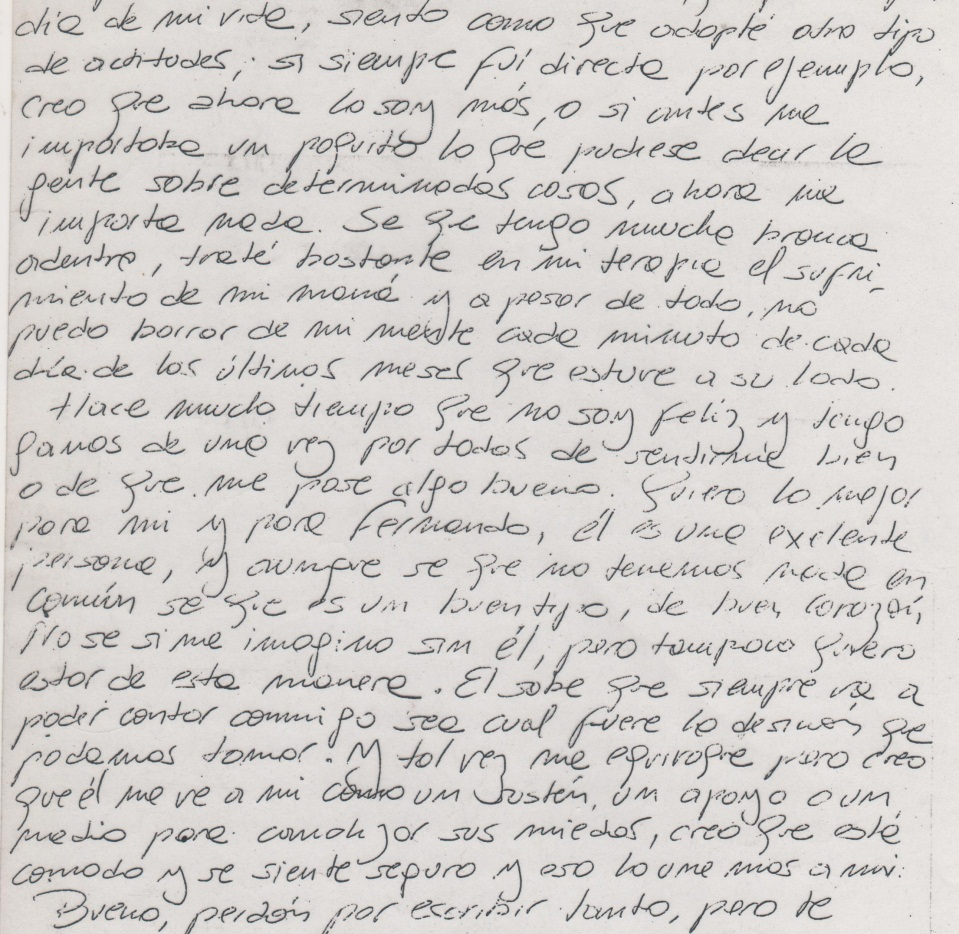 día de mi vida, siento como que adopté otro tipo
de actitudes, si siempre fuí directa por ejemplo,
creo que ahora lo soy más, o si antes me
importaba un poquito lo que pudiese decir la
gente sobre determinadas cosas, ahora me
importa nada. Se que tengo mucha bronca
adentro, traté bastante en mi terapia el sufri_
miento de mi mamá y a pesar de todo, no
puedo borrar de mi mente cada minuto de cada
día de los últimos meses que estuve a su lado.
Hace mucho tiempo que no soy feliz y tengo
ganas de una vez por todas de sentirme bien
o de que me pase algo bueno. Quiero lo mejor
para mi y para Fernando, él es una exelente
persona, y aunque se que no tenemos nada en
común sé que es un buen tipo, de buen corazón,
No se si me imagino sin él, pero tampoco quiero
estar de esta manera. El sabe que siempre va a
poder contar conmigo sea cual fuere la desición que
podamos tomar. Y tal vez me equivoque pero creo
que él me ve a mi como un sostén, un apoyo o un
medio para canalizar sus miedos, creo que está
comodo y se siente seguro y eso lo une mas a mi.
Bueno, perdón por escribir tanto, pero te